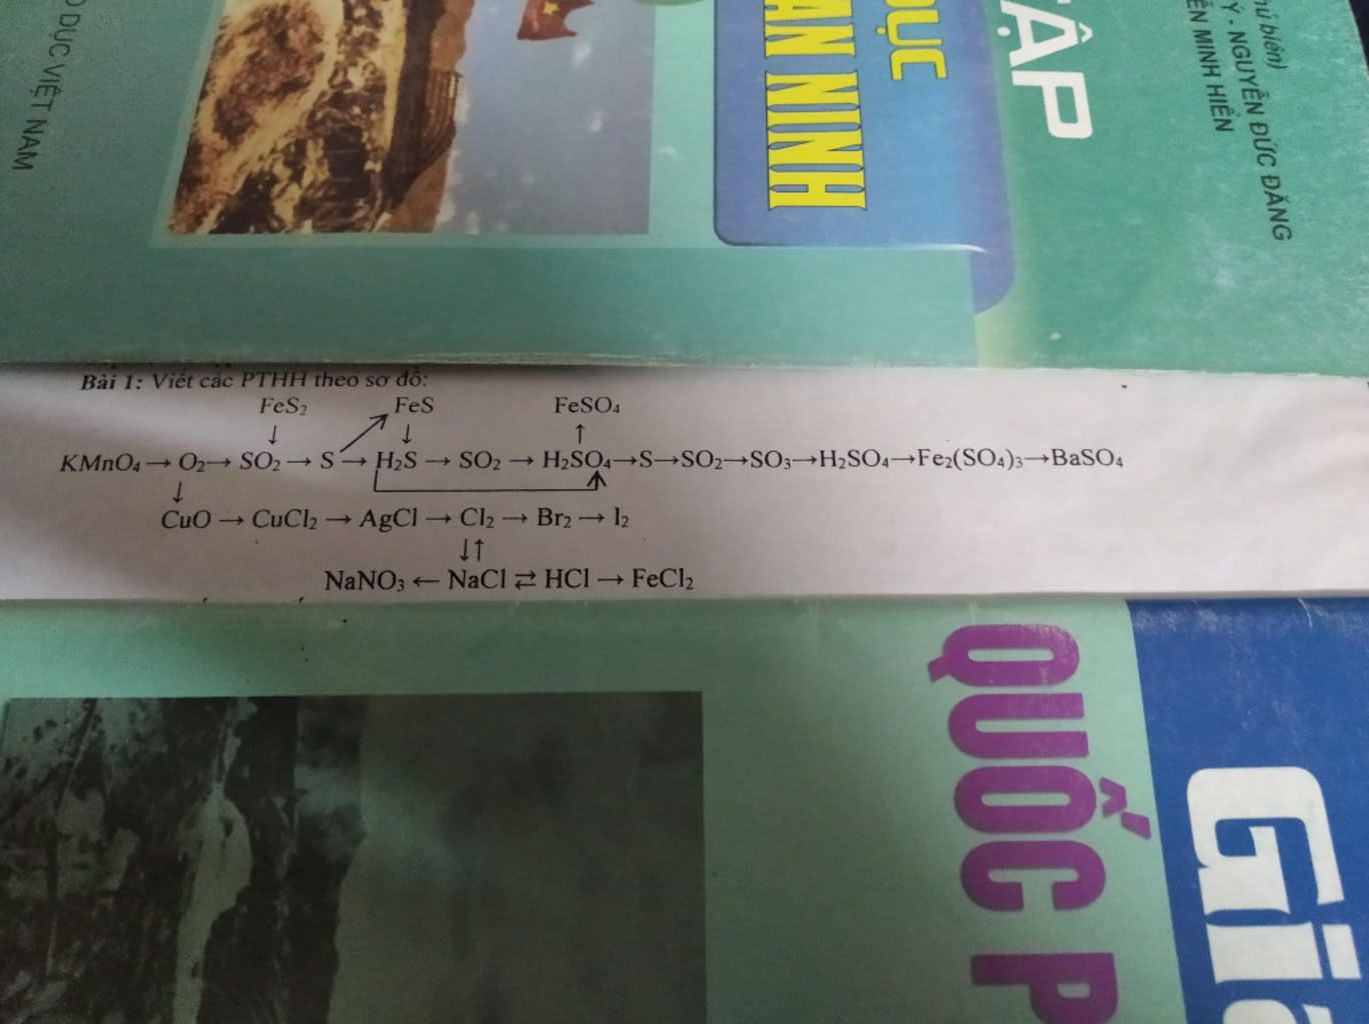 TẬP
DỤC
AN NINH
hủ biên)
Ý - NGUYỄN ĐỨC ĐĂNG
ỄN MINH HIỂN
DỤC VIỆT NAM
Bài 1: Viết các PTHH theo sơ đồ:
FeS₂ FeS FeSO₄
↓ ↗ ↓ ↑
KMnO₄ → O₂ → SO₂ → S → H₂S → SO₂ → H₂SO₄ → S → SO₂ → SO₃ → H₂SO₄ → Fe₂(SO₄)₃ → BaSO₄
↓
CuO → CuCl₂ → AgCl → Cl₂ → Br₂ → I₂
↓↑
NaNO₃ ← NaCl ⇄ HCl → FeCl₂
QUỐC P
Gi